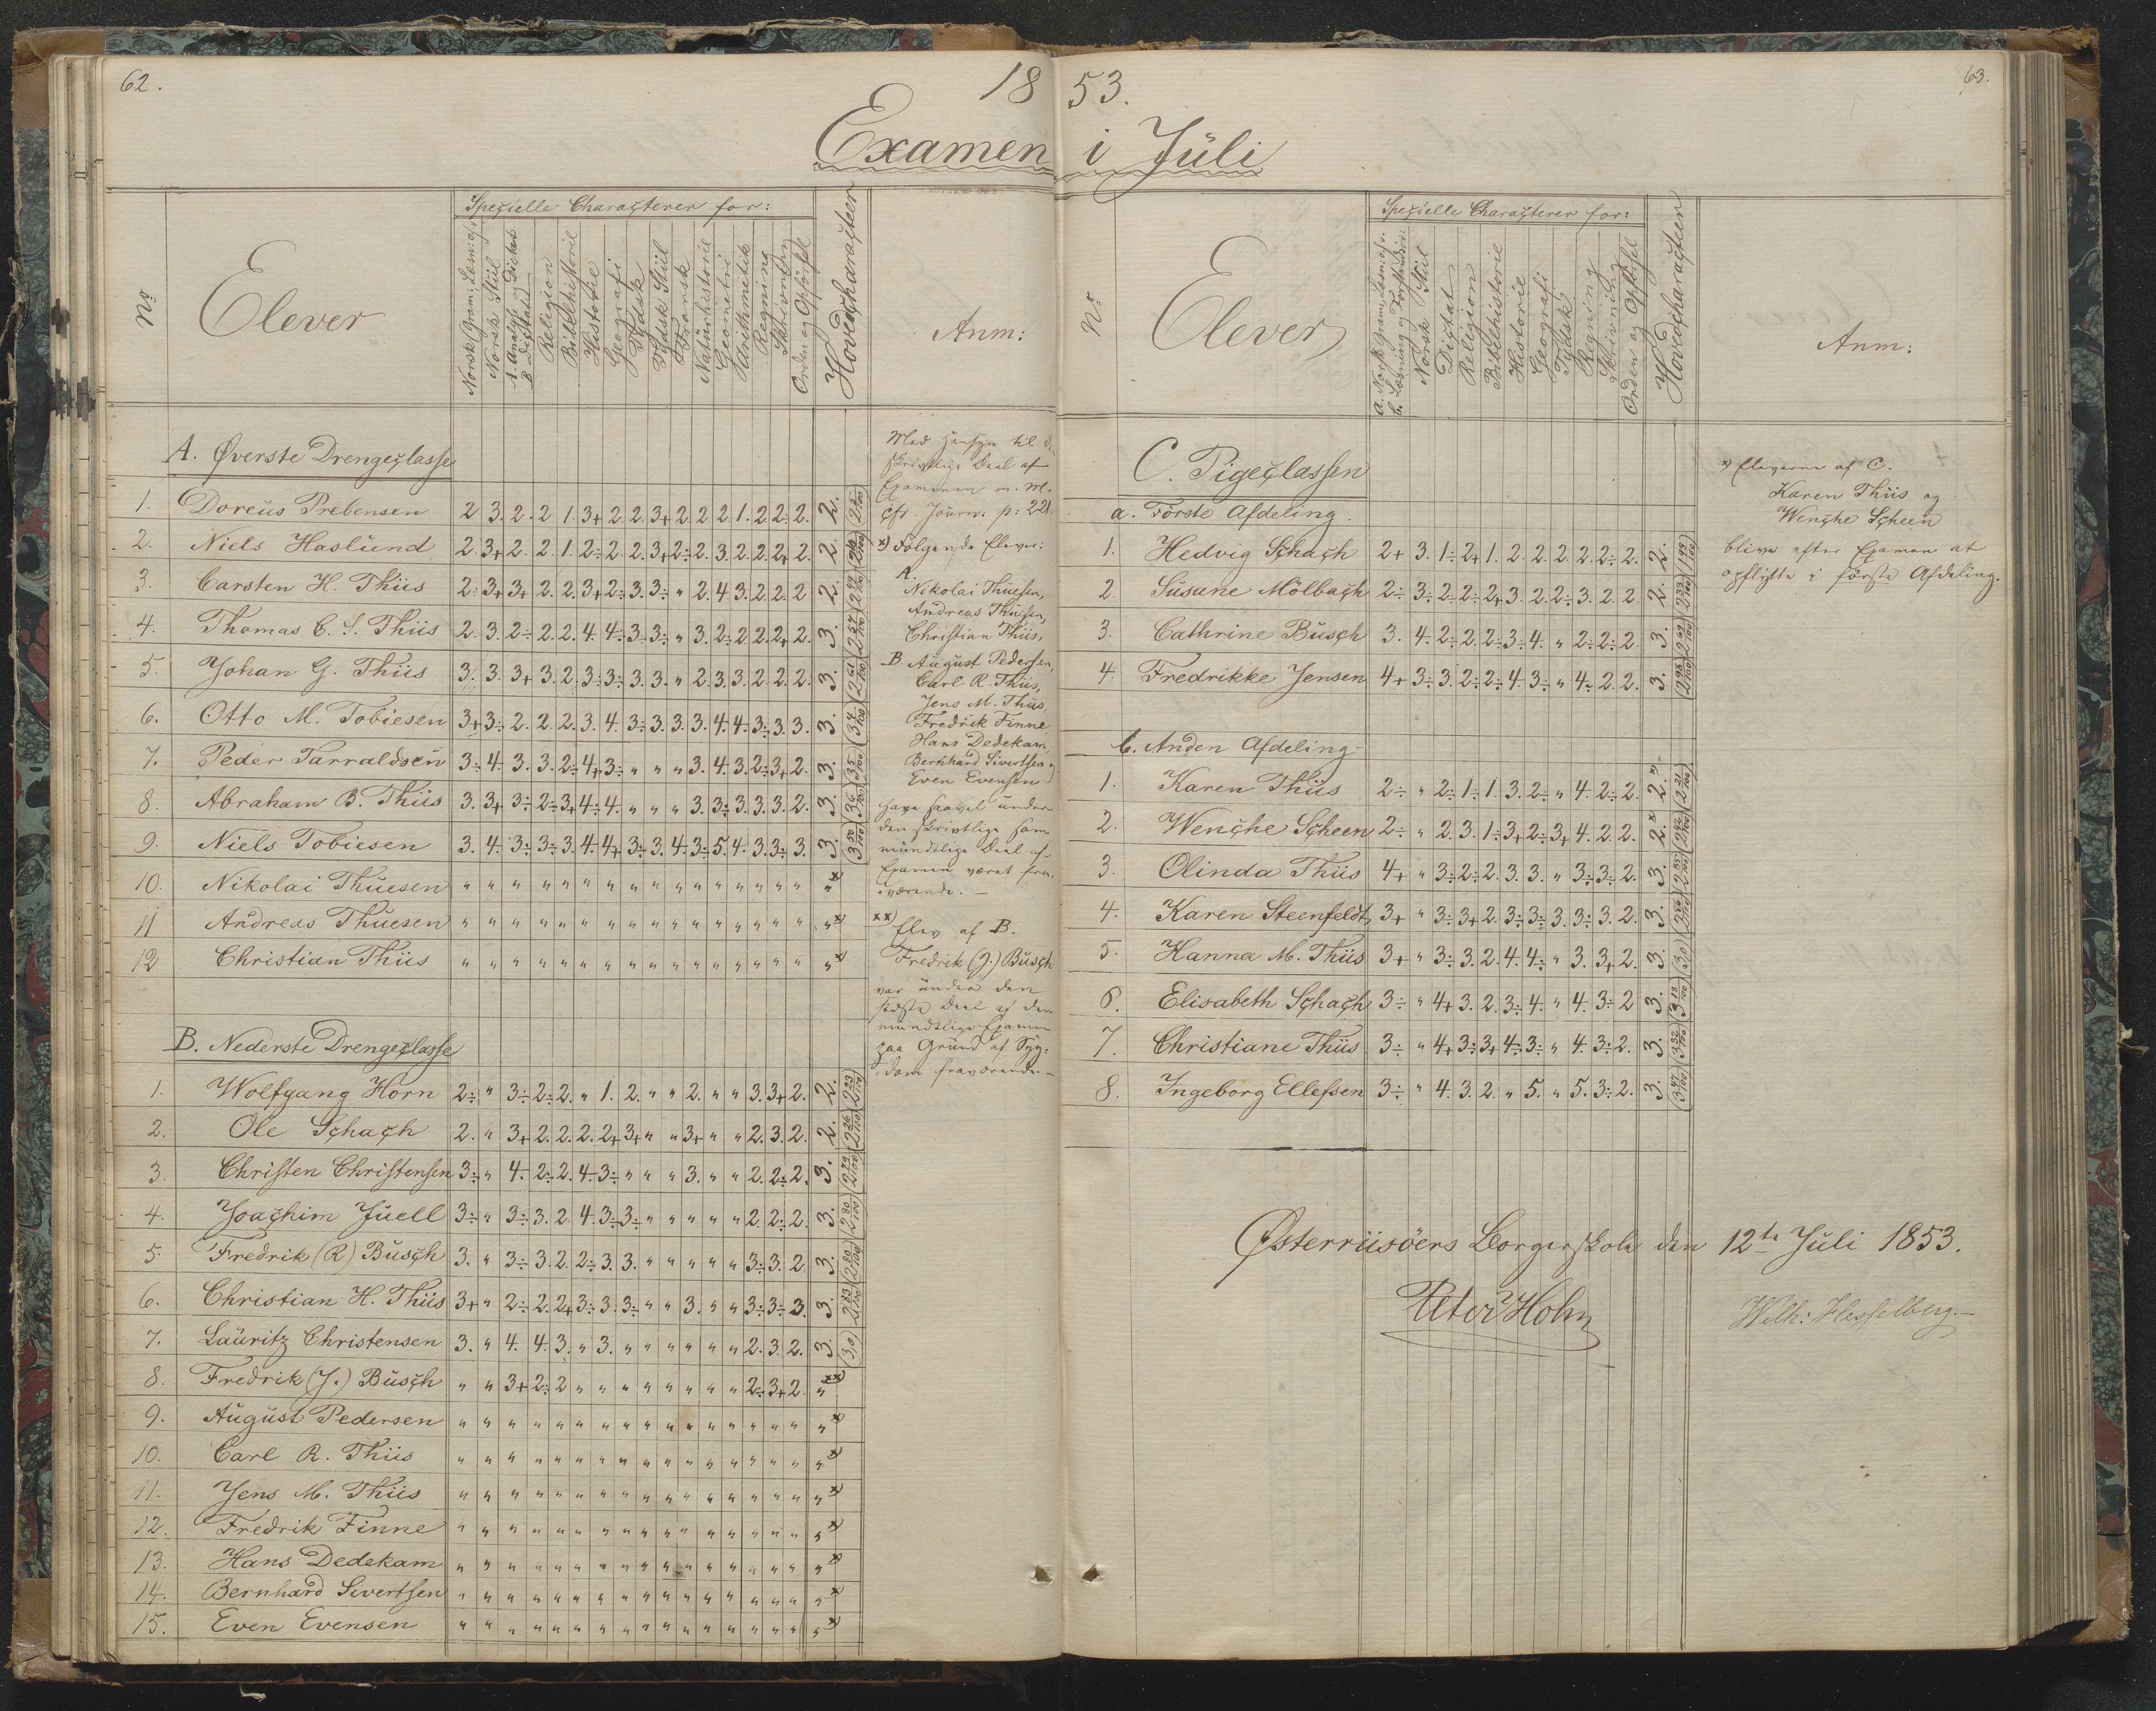 62.
18 53.
63.
Examen i Juli
No
Elever
Specielle Characterer for:
Norsk Gram:, Læsn: o/s
Norsk Stiil
A. Analyse og Dictat
B. Dictat
Religion
Bibelhistorie
Historie
Geografi
Tydsk
Tydsk Stiil
Fransk
Naturhistorie
Geometri
Arithmetik
Regning
Skrivning
Orden og Opførsel
Hovedcharacteer
Anm:
A. Øverste Drengeclasse
1. Doreus Prebensen 2 3. 2. 2 1. 3+ 2. 2. 3+ 2. 2. 2. 1. 2. 2÷ 2. 2.
2. Niels Haslund 2. 3+ 2. 2. 1. 2÷ 2. 2. 3+ 2÷ 2. 3. 2. 2. 2+ 2. 2.
3. Carsten H. Thiis 2÷ 3+ 3+ 2. 2. 3+ 2÷ 3. 3÷ " 2. 4. 3. 2. 2. 2 2.
4. Thomas C. S. Thiis 2. 3. 2÷ 2. 2. 4. 4÷ 3. 3÷ " 3. 2÷ 2. 2. 2+ 2. 3.
5. Johan G. Thiis 3. 3. 3+ 3. 2. 3÷ 3÷ 3. 3. " 2. 3. 3. 2. 2. 2. 3.
6. Otto M. Tobiesen 3+ 3÷ 2. 2. 2. 3. 4. 3÷ 3. 3. 3. 4. 4. 3÷ 3. 3. 3.
7. Peder Tarraldsen 3÷ 4. 3. 3. 2÷ 4+ 3÷ " " " 3. 4. 3. 2÷ 3+ 2. 3.
8. Abraham B. Thiis 3. 3+ 3÷ 2÷ 3+ 4÷ 4. " " " 3. 3÷ 3. 3. 3. 2. 3.
9. Niels Tobiesen 3. 4. 3÷ 3÷ 3. 4. 4+ 3÷ 3. 4. 3÷ 5. 4. 3. 3÷ 3. 3. 3 50/100
10. Nikolai Thuesen " " " " " " " " " " " " " " " " " x)
11 Andreas Thuesen " " " " " " " " " " " " " " " " " x)
12 Christian Thiis " " " " " " " " " " " " " " " " " x)
B. Nederste Drengeclasse
1. Wolfgang Horn 2÷ " 3÷ 2÷ 2. " 1. 2. " " 2. " " 3. 3+ 2. 2. 2 23/100
2. Ole Schach 2. " 3+ 2. 2. 2. 2+ 3+ " " 3+ " " 2. 3. 2. 2. 2 26/100
3. Christen Christensen 3÷ " 4. 2÷ 2. 4. 3÷ " " " 3. " " 2. 2÷ 2. 3. 2 79/100
4. Joachim Juell 3÷ " 3÷ 3. 2. 4. 3÷ 3÷ " " " " " 2. 2÷ 2. 3. 2 80/100
5. Fredrik (R) Busch 3. " 3÷ 3. 2. 2÷ 3. 3. " " " " " 3÷ 3. 2 3. 2 80/100
6. Christian H. Thiis 3+ " 2÷ 2. 2+ 3÷ 3. 3÷ " " 3. " " 3÷ 3÷ 3. 3. 2 83/100
7. Lauritz Christensen 3. " 4. 4. 3. " 3. " " " " " " 2. 3. 2. 3. (3,0)
8. Fredrik (J.) Busch " " 3+ 2÷ 2 " " " " " " " " 2÷ 3+ 2. " xx)
9. August Pedersen " " " " " " " " " " " " " " " " " x)
10. Carl R. Thiis " " " " " " " " " " " " " " " " " x)
11. Jens M. Thiis " " " " " " " " " " " " " " " " " x)
12. Fredrik Finne " " " " " " " " " " " " " " " " " x)
13. Hans Dedekam " " " " " " " " " " " " " " " " " x)
14. Bernhard Sivertsen " " " " " " " " " " " " " " " " " x)
15. Even Evensen " " " " " " " " " " " " " " " " " x)
Med Hensyn til d
skrivtlige Deel af
Examenen m. M.
cfr. Journ: p: 221.
x) Følgende Elever:
A.
Nikolai Thuesen,
Andreas Thuesen,
Christian Thiis,
B. August Pedersen,
Carl R. Thiis,
Jens M. Thiis,
Fredrik Finne
Hans Dedekam,
Bernhard Sivertsen
Even Evensen
have saavel under
den skrivtlige som
mundtlige Deel af
Examen været fra-
værende. —
xx)
Elev af B.
Fredrik (J.) Busch
var under den
sidste Deel af den
mundtlige Examen
paa Grund af Syg-
dom fraværende. —
No
Elever
Specielle Characterer for:
a. Norsk Gram:, Læsn: o/s.
b. Læsning og Forstandsøv:
Norsk Stiil
Dictat
Religion
Bibelhistorie
Historie
Geografi
Tydsk
Regning
Skrivning
Orden og Opførsel
Hovedcharacteer
Anm:
C. Pigeclassen
a. Første Afdeling.
1. Hedvig Schach 2+ 3. 1÷ 2+ 1. 2. 2. 2. 2. 2÷ 2. 2. 1 99/100
2. Susane Mölbach 2÷ 3÷ 2. 2÷ 2+ 3. 2. 2÷ 3. 2. 2. 2. 2 33/100
3. Cathrine Busch 3. 4. 2÷ 2. 2÷ 3÷ 4. " 2÷ 2÷ 2. 3. 2 69/100
4. Fredrikke Jensen 4+ 3÷ 3. 2÷ 2÷ 4. 3÷ " 4÷ 2. 2. 3. 2 98/100
b. Anden Afdeling
1. Karen Thiis 2÷ " 2÷ 1÷ 1. 3. 2÷ " 4. 2÷ 2. 2. x) 2 21/100
2. Wenche Scheen 2÷ " 2. 3. 1÷ 3+ 2÷ 3+ 4. 2. 2. 2. x) 2 42/100
3. Olinda Thiis 4+ " 3÷ 2÷ 2. 3. 3. " 3÷ 3÷ 2. 3. 2 85/100
4. Karen Steenfeldt 3+ " 3÷ 3+ 2. 3÷ 3÷ 3. 3÷ 3. 2. 3. 2 86/100
5. Hanna M. Thiis 3+ " 3÷ 3. 2. 4. 4÷ " 3. 3+ 2. 3. (3,0)
6. Elisabeth Schach 3÷ " 4+ 3. 2. 3÷ 4. " 4. 3÷ 2 3. 3 13/100
7. Christiane Thiis 3÷ " 4+ 3÷ 3+ 4÷ 3÷ " 4. 3÷ 2. 3. 3 32/100
8. Ingeborg Ellefsen 3÷ " 4. 3. 2. " 5. " 5. 3÷ 2. 3. 3 47/100
x) Eleverne af C.
Karen Thiis og
Wenche Scheen
blive efter Examen at
opflytte i første Afdeling.
Østerriisöers Borgerskole den 12te Juli 1853.
Peter Holm
Wilh: Hesselberg.